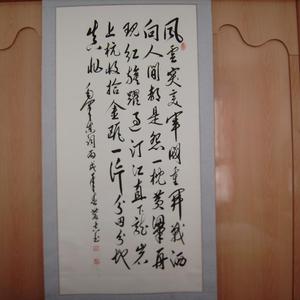 風雲突变軍閥重開战洒
向人間都是怨一枕黄粱再
现红旗躍過汀江直下龍岩
上杭收拾金瓯一片分田分地
真忙 毛澤東詞丙戌年